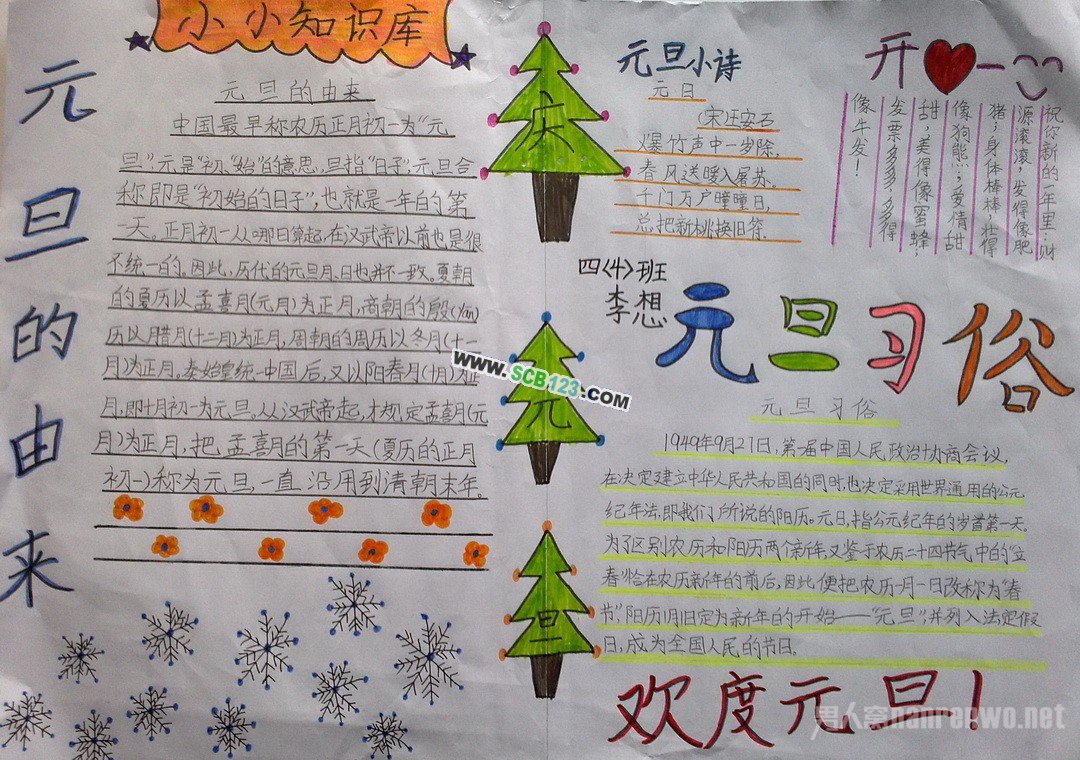 小小知识库
元旦的由来
元旦的由来
中国最早称农历正月初一为“元
旦”元是“初”“始”的意思,旦指“日子”,元旦合
称即是“初始的日子”,也就是一年的第
一天。正月初一从哪日算起,在汉武帝以前也是很
不统一的。因此,历代的元旦月、日也并不一致。夏朝
的夏历以孟喜月(元月)为正月,商朝的殷(yān)
历以腊月(十二月)为正月,周朝的周历以冬月(十一
月)为正月。秦始皇统一中国后,又以阳春月(十月)为正
月,即十月初一为元旦。从汉武帝起,才规定孟喜月(元
月)为正月,把孟喜月的第一天(夏历的正月
初一)称为元旦,一直沿用到清朝末年。
庆
元
旦
元旦小诗
元日
(宋)王安石
爆竹声中一岁除,
春风送暖入屠苏。
千门万户曈曈日,
总把新桃换旧符。
开一
祝你新的一年里:财
源滚滚,发得像肥
猪;身体棒棒,壮得
像狗熊;爱情甜
甜,美得像蜜蜂,
发票多多,多得
像牛发!
四〈4〉班
李想
元旦习俗
元旦习俗
1949年9月27日,第一届中国人民政治协商会议,
在决定建立中华人民共和国的同时,也决定采用世界通用的公元
纪年法,即我们所说的阳历。元日,指公元纪年的岁首第一天。
为了区别农历和阳历两个新年,又鉴于农历二十四节气中的“立
春”恰在农历新年的前后,因此便把农历一月一日改称为“春
节”,阳历1月1日定为新年的开始——“元旦”,并列入法定假
日,成为全国人民的节日.
欢度元旦!
www.SCB123.COM
男人窝nanrenwo.net